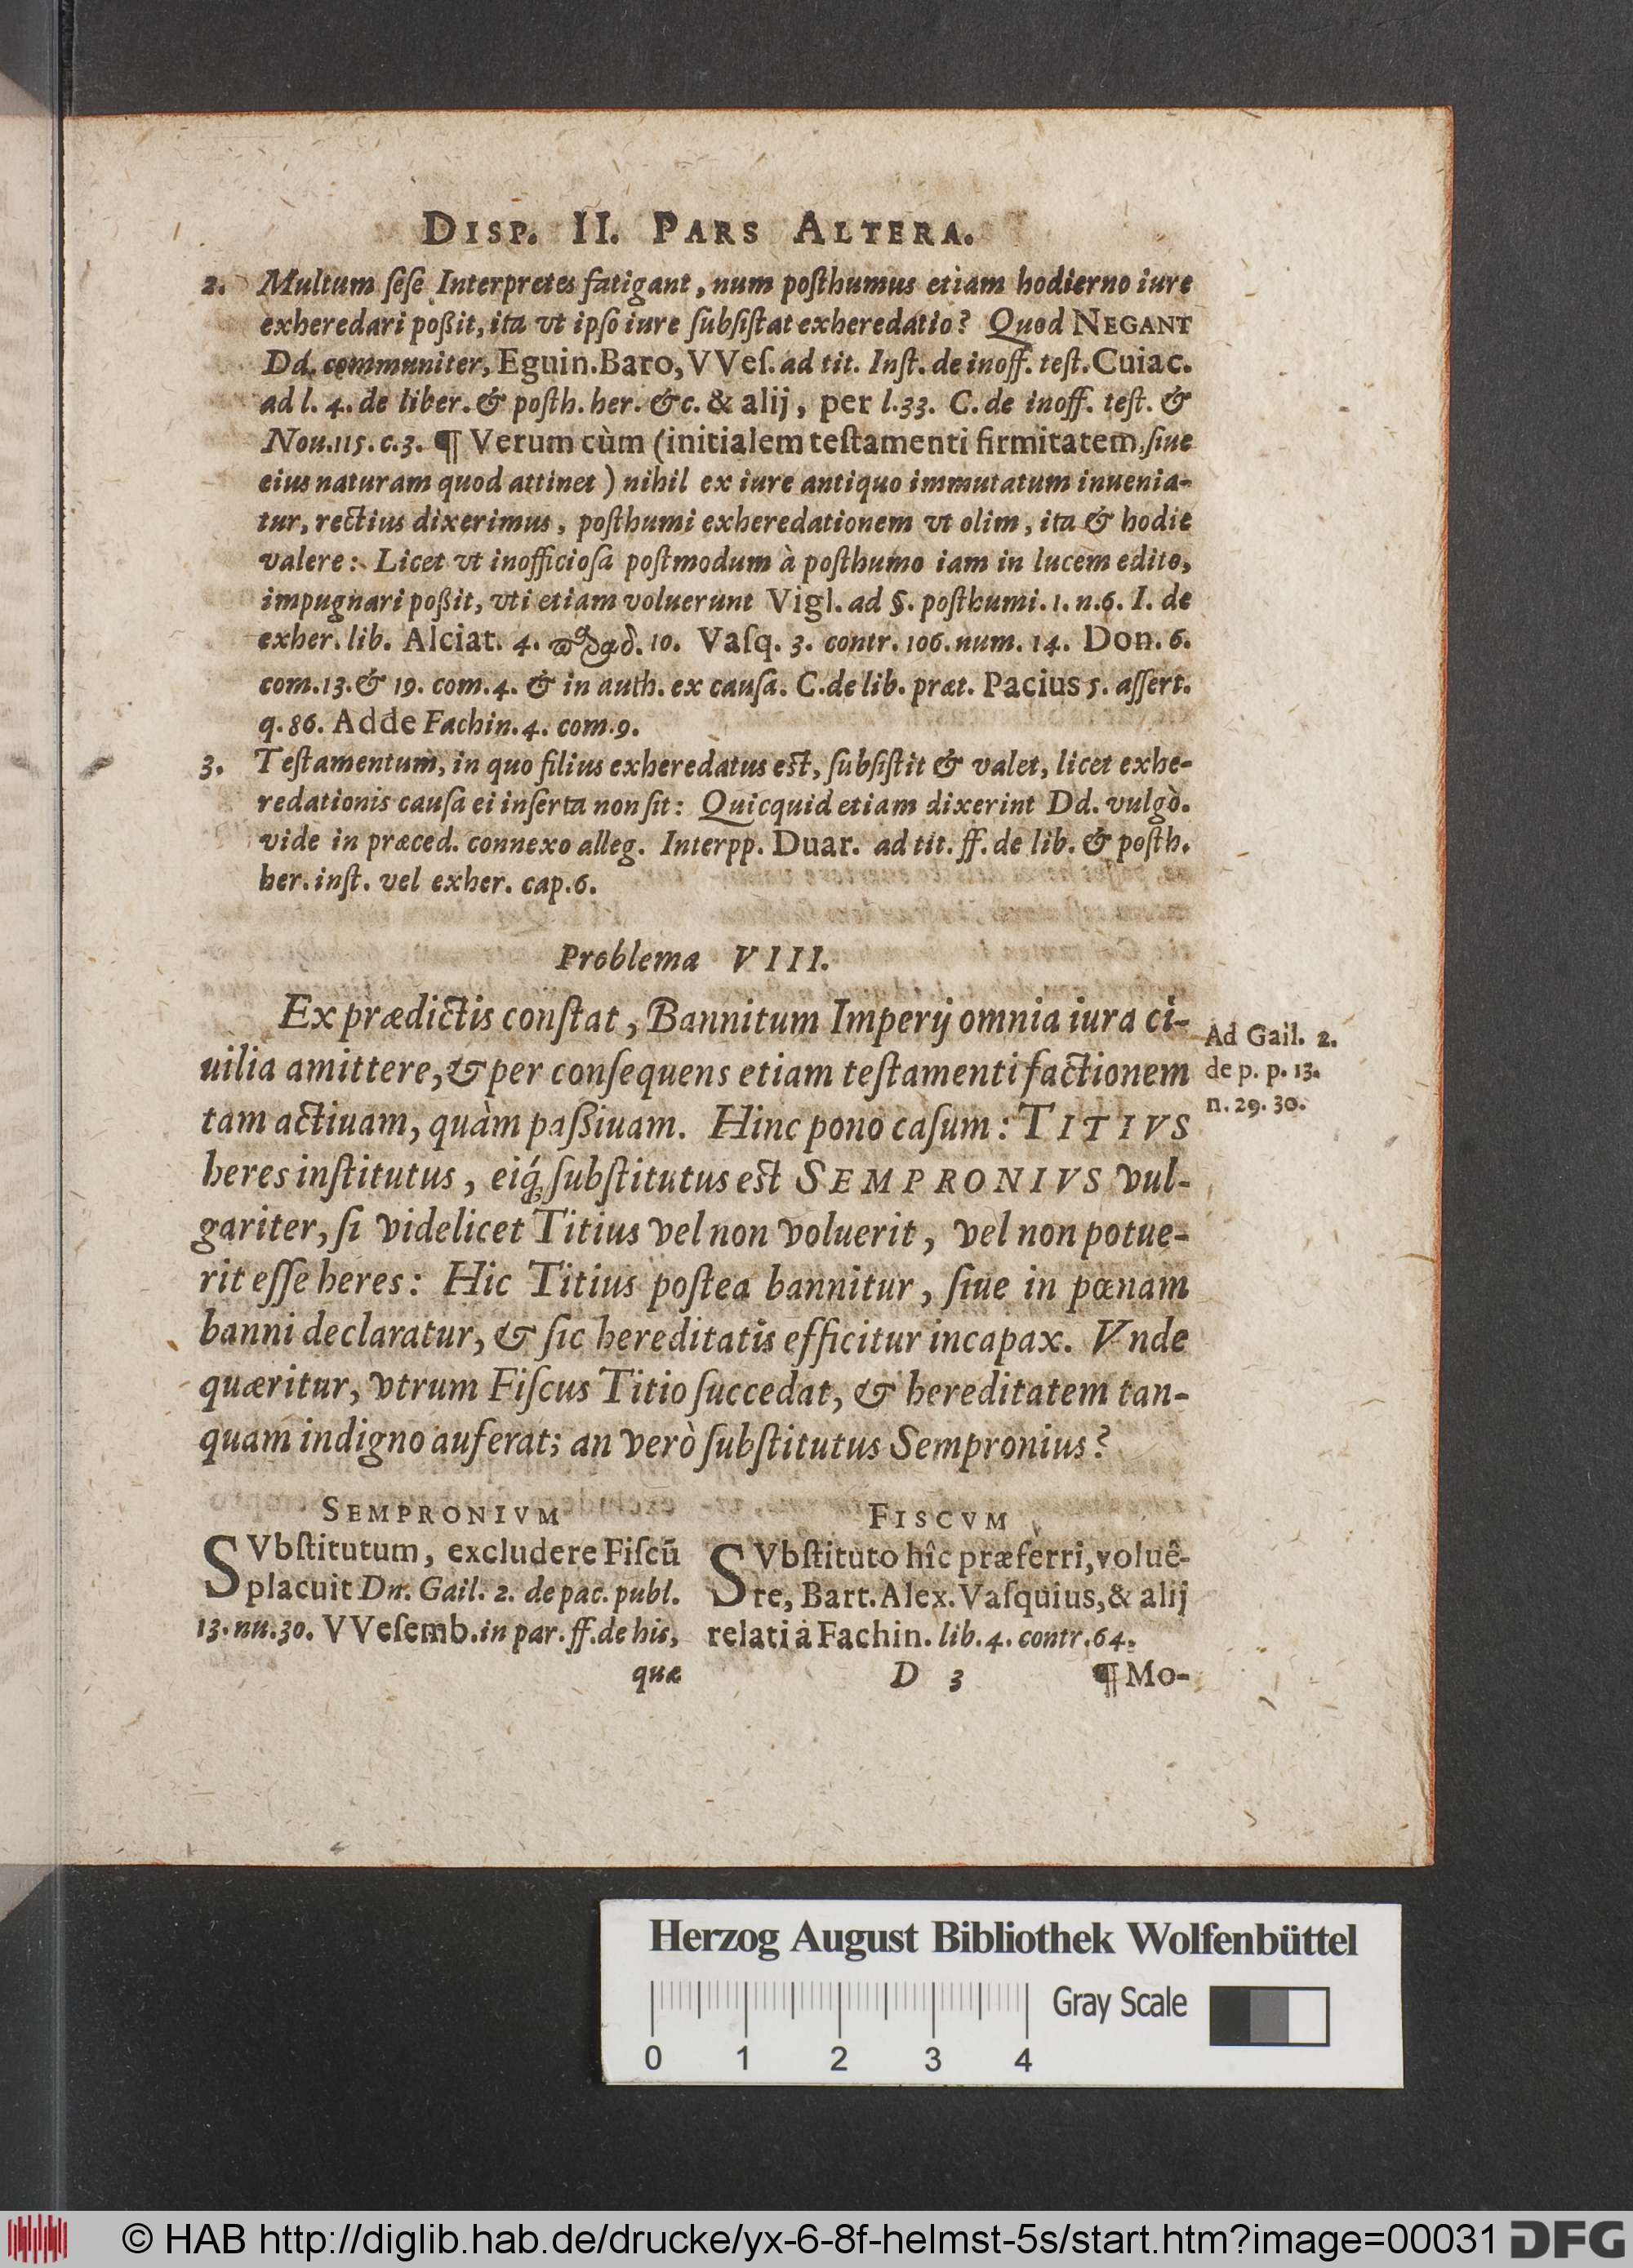 DISP. II. PARS ALTERA.
2. Multum ſeſe Interpretes fatigant, num poſthumus etiam hodierno iure
exheredari poßit, ita vt ipſo iure ſubſiſtat exheredatio? Quod NEGANT
Dd. communiter, Eguin. Baro, VVeſ. ad tit. Inſt. de inoff. teſt. Cuiac.
ad l. 4. de liber. & poſth. her. &c. & alij, per l. 33. C. de inoff. teſt. &
Nou. 115. c. 3. ¶ Verum cùm (initialem teſtamenti firmitatem, ſiue
eius naturam quod attinet) nihil ex iure antiquo immutatum inuenia-
tur, rectius dixerimus, poſthumi exheredationem vt olim, ita & hodie
valere: Licet vt inofficioſa poſtmodum à poſthumo iam in lucem edito,
impugnari poßit, vti etiam voluerunt Vigl. ad §. poſthumi. 1. n. 6. I. de
exher. lib. Alciat. 4. 10. Vaſq. 3. contr. 106. num. 14. Don. 6.
com. 13. & 19. com. 4. & in auth. ex cauſa. C. de lib. præt. Pacius 5. aſſert.
q. 86. Adde Fachin. 4. com. 9.
3. Teſtamentum, in quo filius exheredatus eſt, ſubſiſtit & valet, licet exhe-
redationis cauſa ei inſerta non ſit: Quicquid etiam dixerint Dd. vulgò.
vide in præced. connexo alleg. Interpp. Duar. ad tit. ff. de lib. & poſth.
her. inſt. vel exher. cap. 6.
Problema VIII.
Ex prædictis conſtat, Bannitum Imperij omnia iura ci-
uilia amittere, & per conſequens etiam teſtamenti factionem
tam actiuam, quàm paßiuam. Hinc pono caſum: TITIVS
heres inſtitutus, eiq́; ſubſtitutus eſt SEMPRONIVS vul-
gariter, ſi videlicet Titius vel non voluerit, vel non potue-
rit eſſe heres: Hic Titius poſtea bannitur, ſiue in pœnam
banni declaratur, & ſic hereditatis efficitur incapax. Vnde
quæritur, vtrum Fiſcus Titio ſuccedat, & hereditatem tan-
quam indigno auferat; an verò ſubſtitutus Sempronius?
Ad Gail. 2.
de p. p. 13.
n. 29. 30.
SEMPRONIVM
SVbſtitutum, excludere Fiſcū
placuit Dn. Gail. 2. de pac. publ.
13. nu. 30. VVeſemb. in par. ff. de his,
quæ
FISCVM
SVbſtituto hîc præferri, voluê-
re, Bart. Alex. Vaſquius, & alij
relati à Fachin. lib. 4. contr. 64.
D 3
¶ Mo-
Herzog August Bibliothek Wolfenbüttel
Gray Scale
0 1 2 3 4
© HAB http://diglib.hab.de/drucke/yx-6-8f-helmst-5s/start.htm?image=00031 DFG